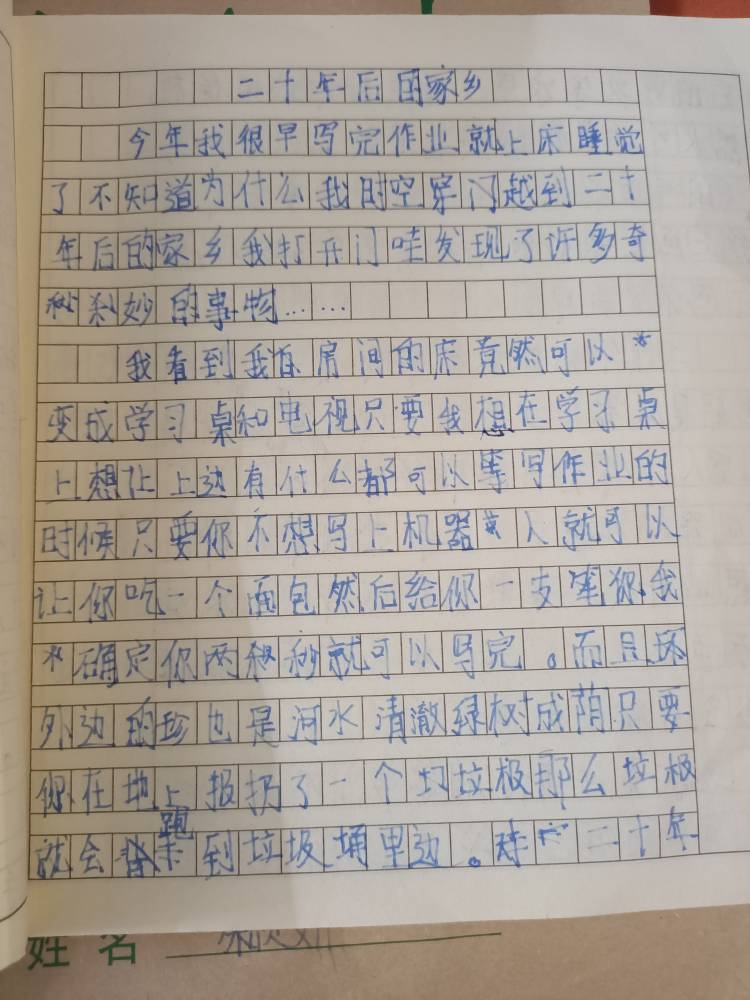 二十年后的家乡
今年我很早写完作业就上床睡觉
了不知道为什么我时空穿门越到二十
年后的家乡我打开门哇发现了许多奇
妙的事物……
我看到我在房间的床竟然可以
变成学习桌和电视只要我想在学习桌
上想让上边有什么都可以等写作业的
时候只要你不想写上机器人就可以
让你吃一个面包然后给你一支笔你我
确定你两秒就可以写完。而且
外边的也是河水清澈绿树成荫只要
你在地上扔了一个垃圾那么垃圾
就会跑到垃圾桶里边。二十年
姓名